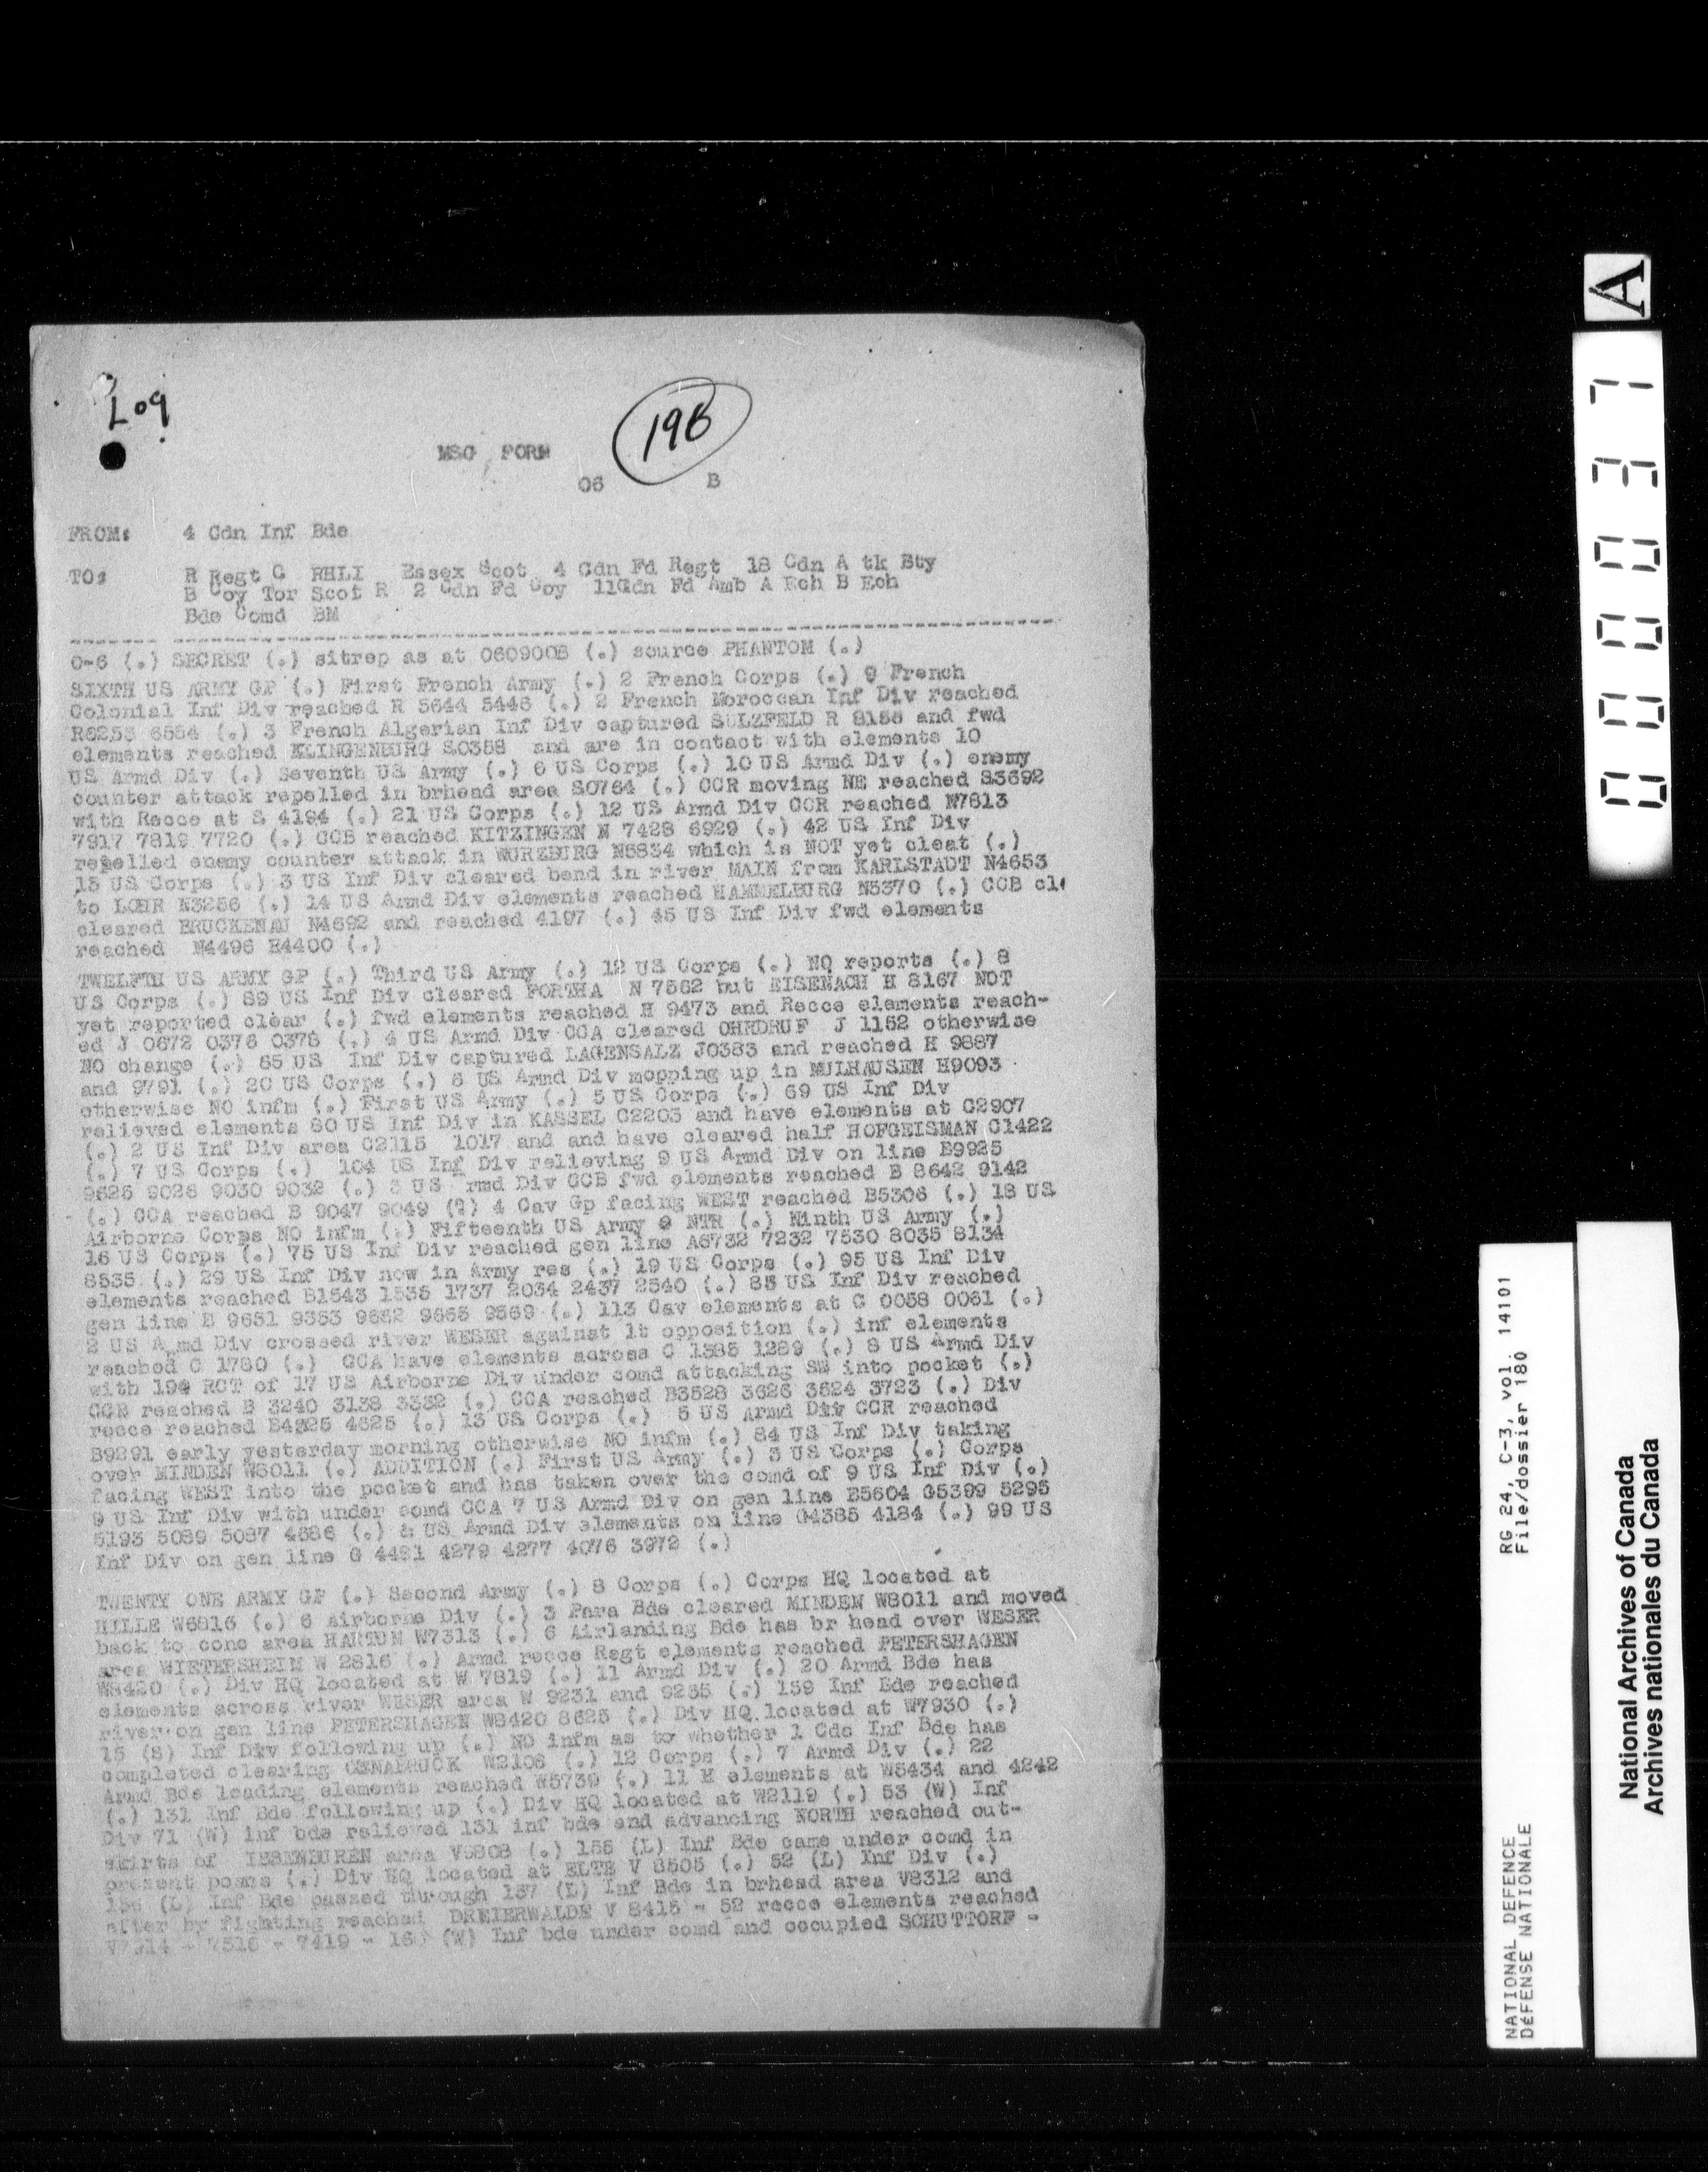 Log
196
MSG FORM
06 B
FROM: 4 Cdn Inf Bde
TO: R Regt C RHLI Essex Scot 4 Cdn Fd Regt 18 Cdn A tk Bty
B Coy Tor Scot R 2 Cdn Fd Coy 11Cdn Fd Amb A Ech B Ech
Bde Comd BM
O-6 (.) SECRET (.) sitrep as at 060900B (.) source PHANTOM (.)
SIXTH US ARMY GP (.) First French Army (.) 2 French Corps (.) 9 French
Colonial Inf Div reached R 5644 5446 (.) 2 French Moroccan Inf Div reached
R6255 6554 (.) 3 French Algerian Inf Div captured SULZFELD R 8158 and fwd
elements reached KLINGENBURG S0358 and are in contact with elements 10
US Armd Div (.) Seventh US Army (.) 6 US Corps (.) 10 US Armd Div (.) enemy
counter attack repelled in brhead area S0764 (.) CCR moving NE reached S3692
with Recce at S 4194 (.) 21 US Corps (.) 12 US Armd Div CCR reached N7613
7917 7819 7720 (.) CCB reached KITZINGEN N 7428 6929 (.) 42 US Inf Div
repelled enemy counter attack in WURZBURG N5834 which is NOT yet cleat (.)
15 US Corps (.) 3 US Inf Div cleared bend in river MAIN from KARLSTADT N4653
to LOHR N3256 (.) 14 US Armd Div elements reached HAMMELBURG N5370 (.) CCB cle
cleared BRUCKENAU N4692 and reached 4197 (.) 45 US Inf Div fwd elements
reached N4496 H4400 (.)
TWELFTH US ARMY GP (.) Third US Army (.) 12 US Corps (.) NO reports (.) 8
US Corps (.) 89 US Inf Div cleared FORTHA N 7562 but EISENACH H 8167 NOT
yet reported clear (.) fwd elements reached H 9473 and Recce elements reach-
ed J 0672 0376 0378 (.) 4 US Armd Div CCA cleared OHRDRUF J 1152 otherwise
NO change (.) 65 US Inf Div captured LAGENSALZ J0383 and reached H 9887
and 9791 (.) 20 US Corps (.) 6 US Armd Div mopping up in MULHAUSEN H9093
otherwise NO infm (.) First US Army (.) 5 US Corps (.) 69 US Inf Div
relieved elements 80 US Inf Div in KASSEL C2203 and have elements at C2907
(.) 2 US Inf Div area C2115 1017 and and have cleared half HOFGEISMAN C1422
(.) 7 US Corps (.) 104 US Inf Div relieving 9 US Armd Div on line B9925
9626 9026 9030 9032 (.) 3 US rmd Div CCB fwd elements reached B 8642 9142
(.) CCA reached B 9047 9049 (?) 4 Cav Gp facing WEST reached B5306 (.) 18 US
Airborne Corps NO infm (.) Fifteenth US Army NTR (.) Ninth US Army (.)
16 US Corps (.) 75 US Inf Div reached gen line A6732 7232 7530 8035 8134
8535 (.) 29 US Inf Div now in Army res (.) 19 US Corps (.) 95 US Inf Div
elements reached B1543 1535 1737 2034 2437 2540 (.) 83 US Inf Div reached
gen line B 9651 9353 9652 9665 9569 (.) 113 Cav elements at C 0058 0061 (.)
2 US Armd Div crossed river WESER against lt opposition (.) inf elements
reached C 1780 (.) CCA have elements across C 1385 1289 (.) 8 US Armd Div
with 194 RCT of 17 US Airborne Div under comd attacking SW into pocket (.)
CCR reached B 3240 3138 3332 (.) CCA reached B3528 3626 3624 3723 (.) Div
recce reached B4225 4625 (.) 13 US Corps (.) 5 US Armd Div CCR reached
B9291 early yesterday morning otherwise NO infm (.) 84 US Inf Div taking
over MINDEN W8011 (.) ADDITION (.) First US Army (.) 3 US Corps (.) Corps
facing WEST into the pocket and has taken over the comd of 9 US Inf Div (.)
9 US Inf Div with under comd CCA 7 US Armd Div on gen line B5604 G5399 5295
5193 5089 5087 4686 (.) & US Armd Div elements on line G4385 4184 (.) 99 US
Inf Div on gen line G 4481 4279 4277 4076 3972 (.)
TWENTY ONE ARMY GP (.) Second Army (.) 8 Corps (.) Corps HQ located at
HILLE W6816 (.) 6 Airborne Div (.) 3 Para Bde cleared MINDEN W8011 and moved
back to conc area HARTUM W7313 (.) 6 Airlanding Bde has br head over WESER
area WIETERSHEIM W 2816 (.) Armd recce Regt elements reached PETERSHAGEN
W8420 (.) Div HQ located at W 7819 (.) 11 Armd Div (.) 20 Armd Bde has
elements across river WESER area W 9231 and 9235 (.) 159 Inf Bde reached
river on gen line PETERSHAGEN W8420 8625 (.) Div HQ located at W7930 (.)
15 (S) Inf Div following up (.) NO infm as to whether 1 Cdo Inf Bde has
completed clearing OSNABRUCK W2108 (.) 12 Corps (.) 7 Armd Div (.) 22
Armd Bde leading elements reached W5739 (.) 11 H elements at W5434 and 4242
(.) 131 Inf Bde following up (.) Div HQ located at W2119 (.) 53 (W) Inf
Div 71 (W) inf bde relieved 131 inf bde and advancing NORTH reached out-
skirts of IBBENBUREN area V9808 (.) 155 (L) Inf Bde came under comd in
present posns (.) Div HQ located at ELTE V 8505 (.) 52 (L) Inf Div (.)
156 (L) Inf Bde passed through 157 (L) Inf Bde in brhead area V8312 and
after hy fighting reached DREIERWALDE V 8415 - 52 recce elements reached
V7314 - 7516 - 7419 - 160 (W) Inf bde under comd and occupied SCHUTTORF -
A
000037
NATIONAL DEFENCE
DÉFENSE NATIONALE
RG 24, C-3, vol. 14101
File/dossier 180
National Archives of Canada
Archives nationales du Canada